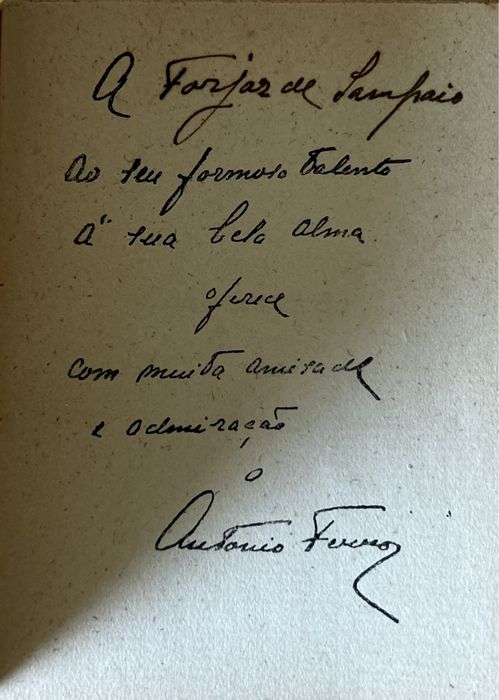 A Forjaz de Sampaio
Ao seu formoso talento
Á sua bela alma
oferece
com muita amisade
e admiração
o
António Ferro